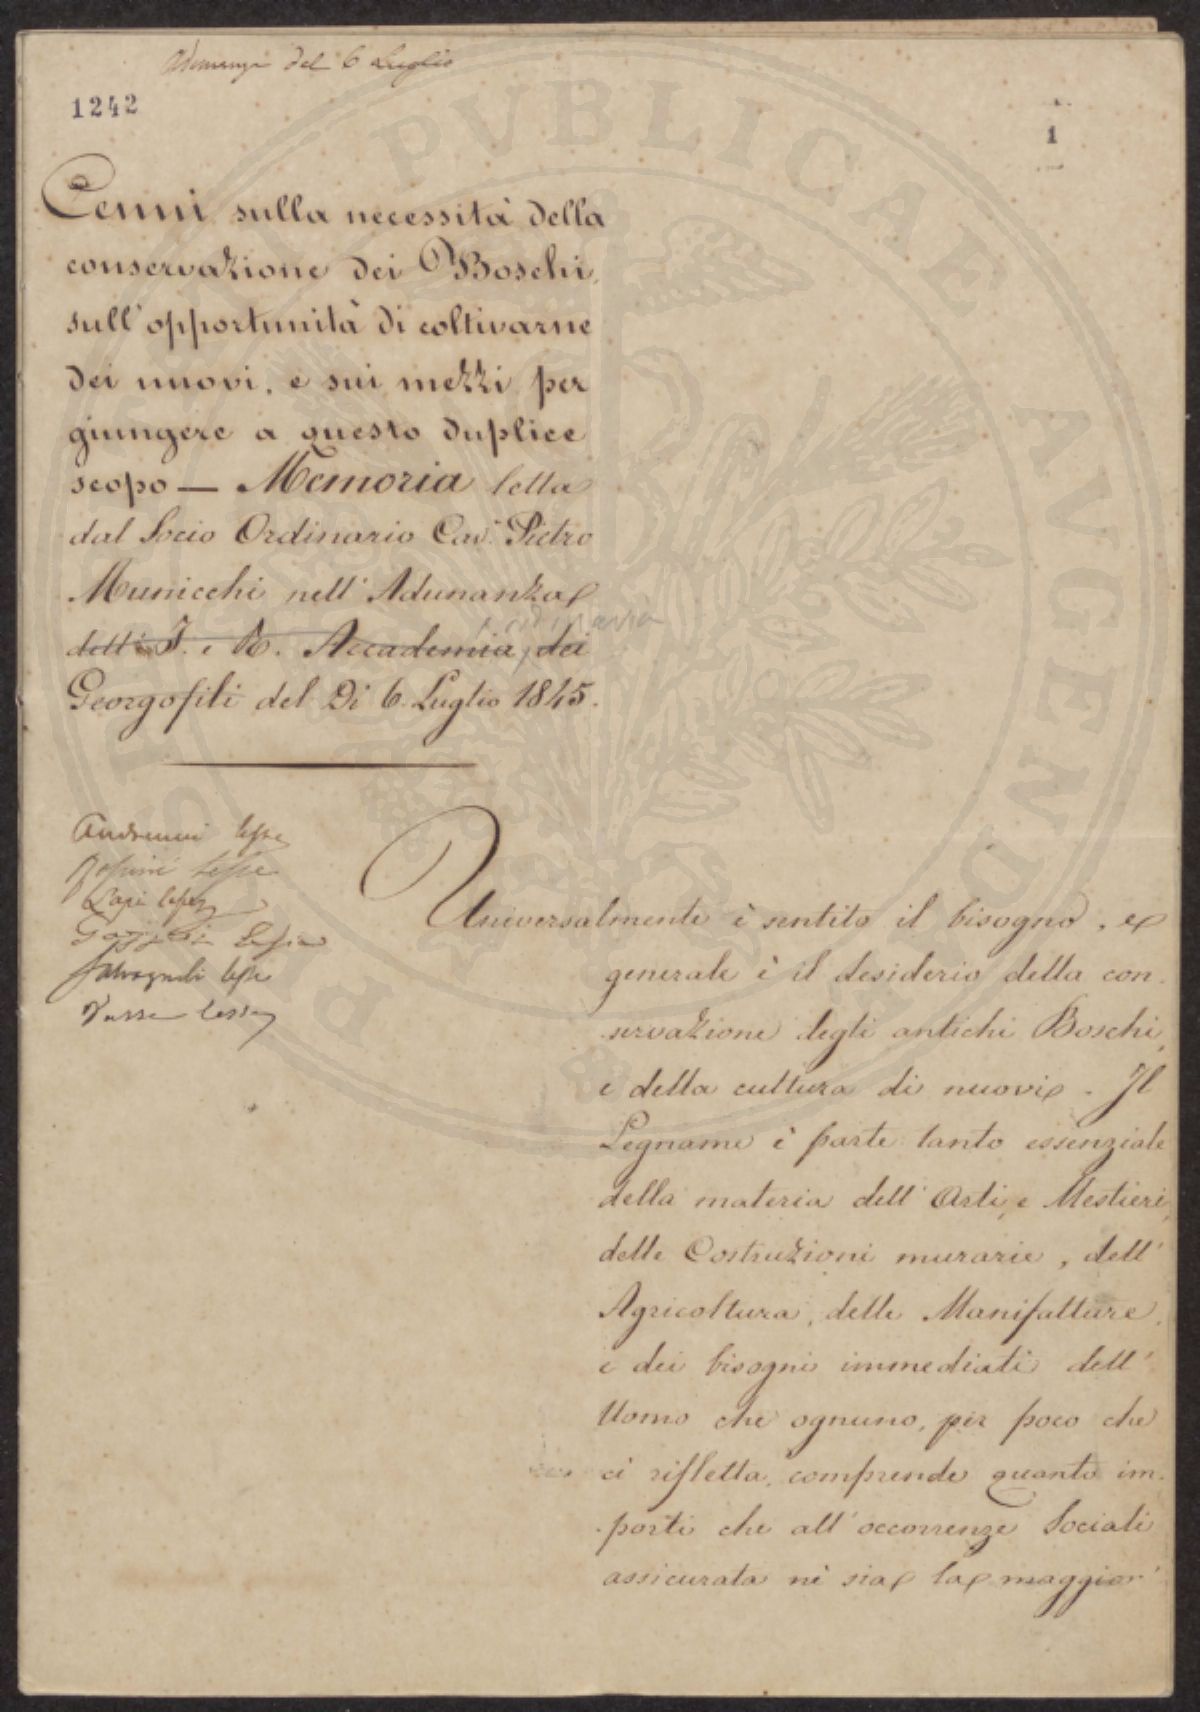 Adunanza del 6 Luglio
1242
1
Cenni sulla necessità della
conservazione dei Boschi,
sull'opportunità di coltivarne
dei nuovi, e sui mezzi per
giungere a questo duplice
scopo — Memoria letta
dal Socio Ordinario Cav. Pietro
Municchi nell'Adunanza
ordinaria
dell'I. e R. Accademia dei
Georgofili del Dì 6. Luglio 1845.
Andreucci lesse
lesse
Lapi lesse
lesse
Salvagnoli lesse
lesse
Universalmente è sentito il bisogno, e
generale è il desiderio della con-
servazione degli antichi Boschi,
e della cultura di nuovi. Il
Legname è parte tanto essenziale
della materia dell'Arti, e Mestieri,
delle Costruzioni murarie, dell'
Agricoltura, delle Manifatture,
e dei bisogni immediati dell'
Uomo che ognuno, per poco che
ci rifletta, comprende quanto im-
porti che all'occorrenze Sociali
assicurata nè sia la maggior
PVBLICAE AVGENDAE